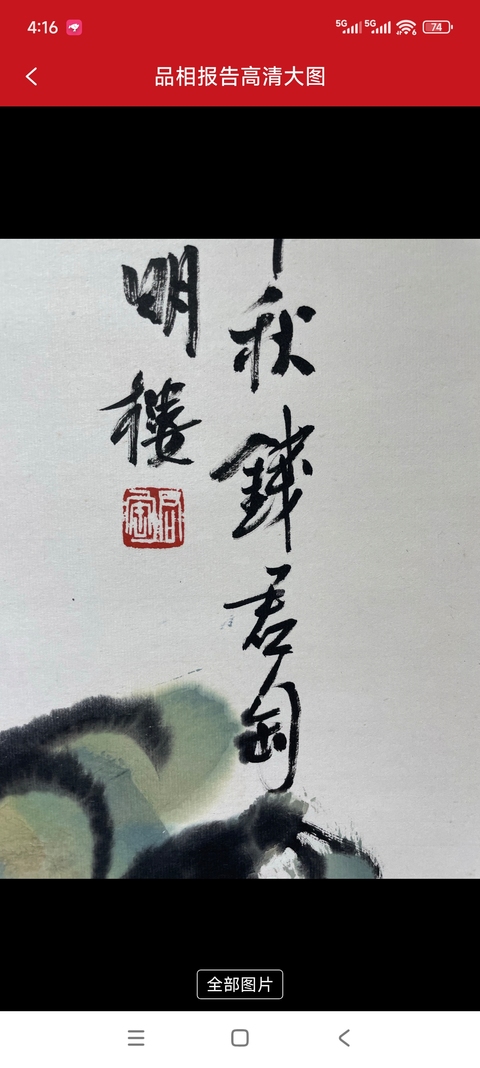 4:16
5G 5G 6 74
品相报告高清大图
秋钱君匋
明楼
全部图片